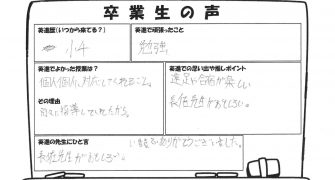 卒業生の声
英進歴（いつから来てる？）
小4
英進で頑張ったこと
勉強。
英進でよかった授業は？
個人個人に対応してくれるところ。
その理由
別々に指導していたから。
英進での思い出や推しポイント
遠足と合宿が楽しい
長佐先生がおもしろい。
英進の先生にひと言
いままでありがとうございました。
長佐先生がおもしろい